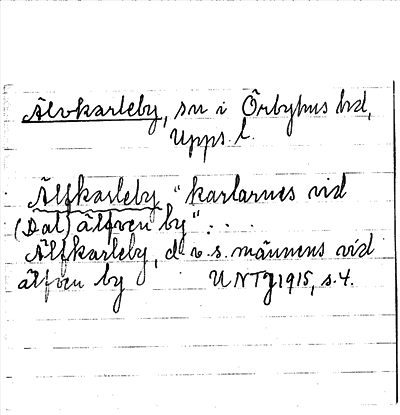 Älvkarleby, sn i Örbyhus hd,
Upps. l.
Älfkarleby "karlarnes vid
(Dal) älfven by" . . .
Älfkarleby, d. v. s. männens vid
älfven by UNT 1915, s. 4.